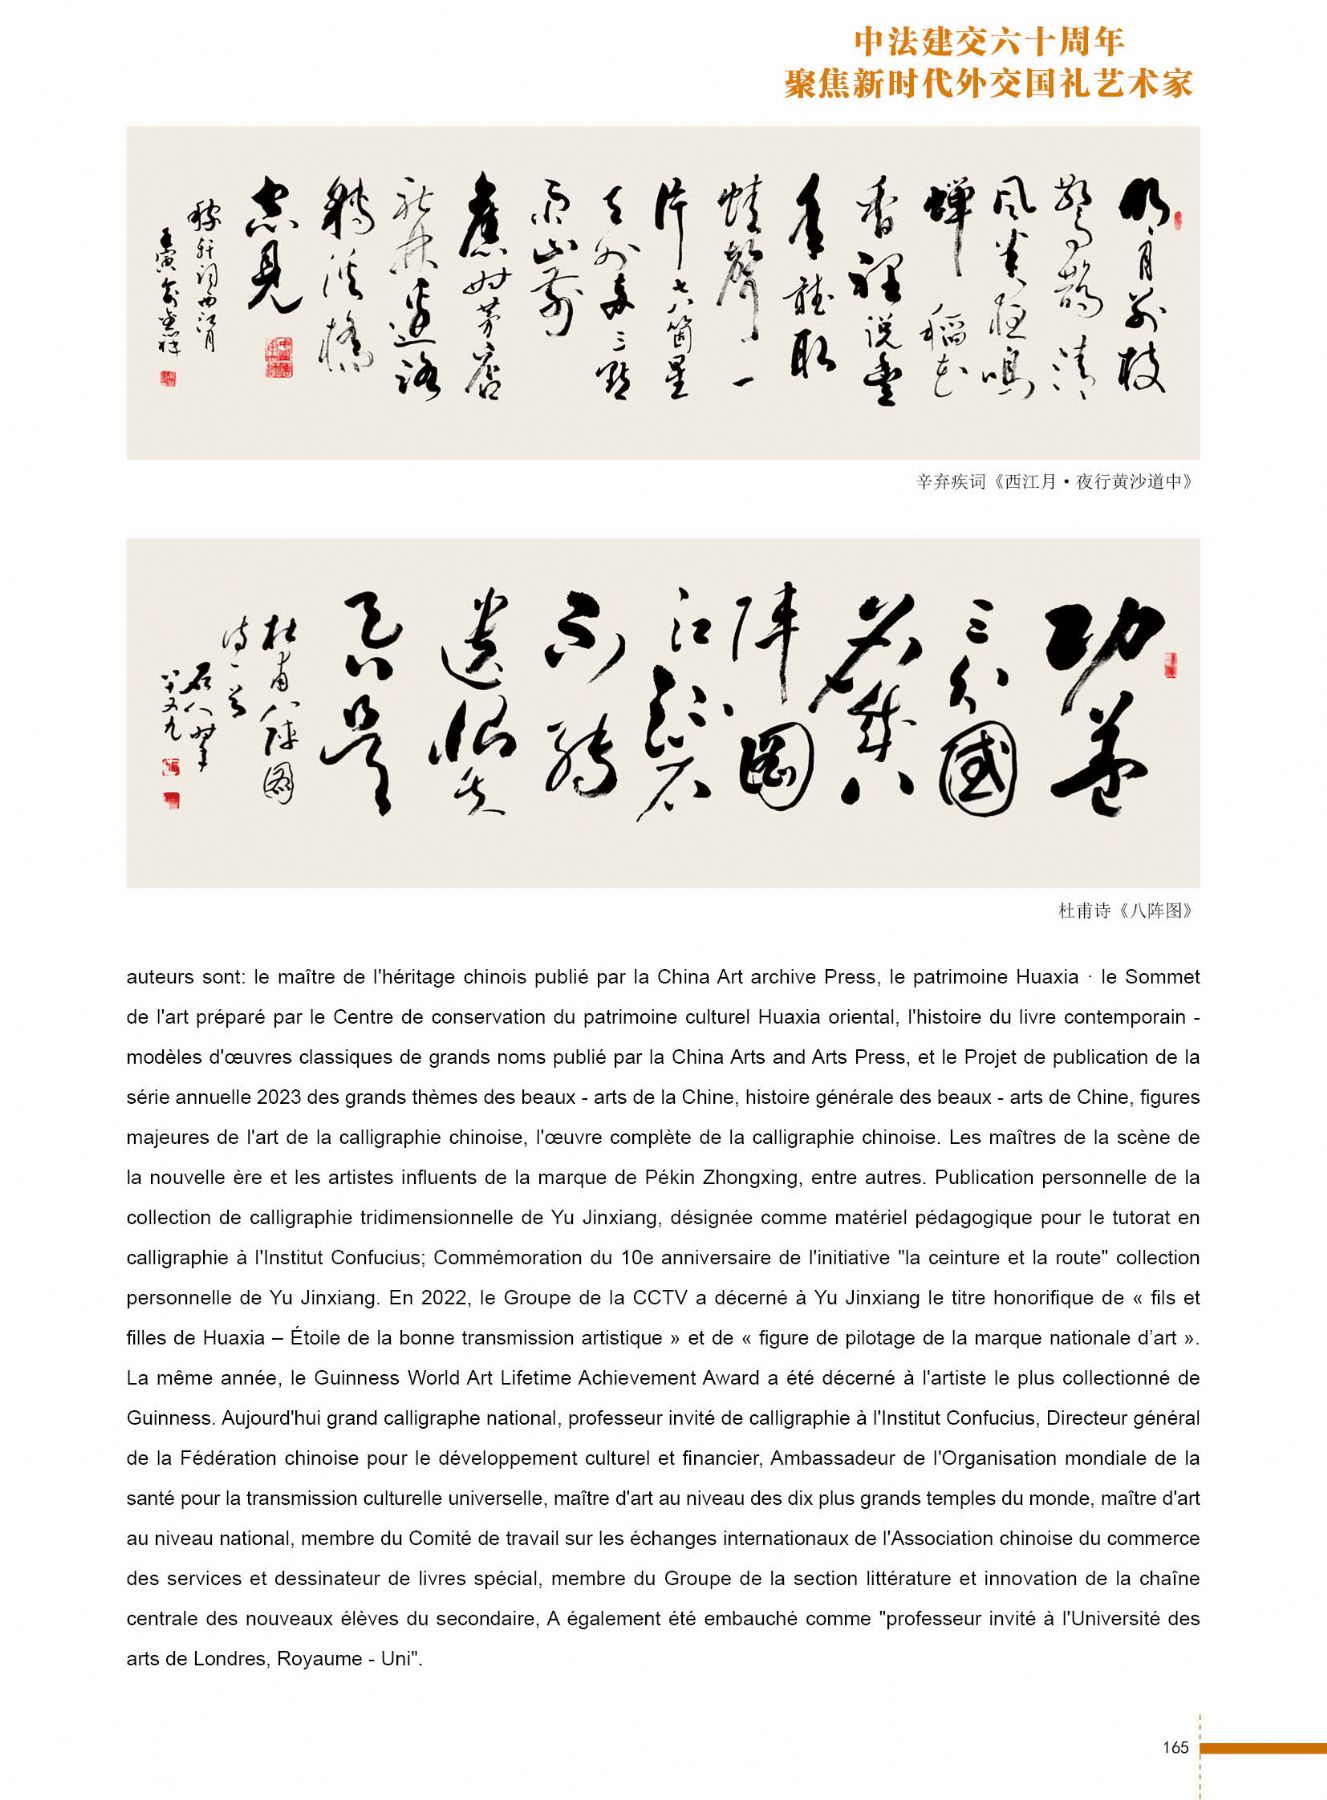 中法建交六十周年
聚焦新时代外交国礼艺术家
明月别枝
驚鵲清
風半夜鳴
蟬稻花
香裡说豐
年聽取
蛙聲一
片七八箇星
天外兩三點
雨山前
舊时茅店
社林邊路
轉溪橋
忽見
稼轩词西江月
壬寅
辛弃疾词《西江月·夜行黄沙道中》
功蓋
三分國
名成八
陣圖
江流石
不轉
遺恨失
吞吴
杜甫八陣圖
诗一首
杜甫诗《八阵图》
auteurs sont: le maître de l'héritage chinois publié par la China Art archive Press, le patrimoine Huaxia · le Sommet
de l'art préparé par le Centre de conservation du patrimoine culturel Huaxia oriental, l'histoire du livre contemporain -
modèles d'œuvres classiques de grands noms publié par la China Arts and Arts Press, et le Projet de publication de la
série annuelle 2023 des grands thèmes des beaux - arts de la Chine, histoire générale des beaux - arts de Chine, figures
majeures de l'art de la calligraphie chinoise, l'œuvre complète de la calligraphie chinoise. Les maîtres de la scène de
la nouvelle ère et les artistes influents de la marque de Pékin Zhongxing, entre autres. Publication personnelle de la
collection de calligraphie tridimensionnelle de Yu Jinxiang, désignée comme matériel pédagogique pour le tutorat en
calligraphie à l'Institut Confucius; Commémoration du 10e anniversaire de l'initiative "la ceinture et la route" collection
personnelle de Yu Jinxiang. En 2022, le Groupe de la CCTV a décerné à Yu Jinxiang le titre honorifique de « fils et
filles de Huaxia – Étoile de la bonne transmission artistique » et de « figure de pilotage de la marque nationale d’art ».
La même année, le Guinness World Art Lifetime Achievement Award a été décerné à l'artiste le plus collectionné de
Guinness. Aujourd'hui grand calligraphe national, professeur invité de calligraphie à l'Institut Confucius, Directeur général
de la Fédération chinoise pour le développement culturel et financier, Ambassadeur de l'Organisation mondiale de la
santé pour la transmission culturelle universelle, maître d'art au niveau des dix plus grands temples du monde, maître d'art
au niveau national, membre du Comité de travail sur les échanges internationaux de l'Association chinoise du commerce
des services et dessinateur de livres spécial, membre du Groupe de la section littérature et innovation de la chaîne
centrale des nouveaux élèves du secondaire, A également été embauché comme "professeur invité à l'Université des
arts de Londres, Royaume - Uni".
165